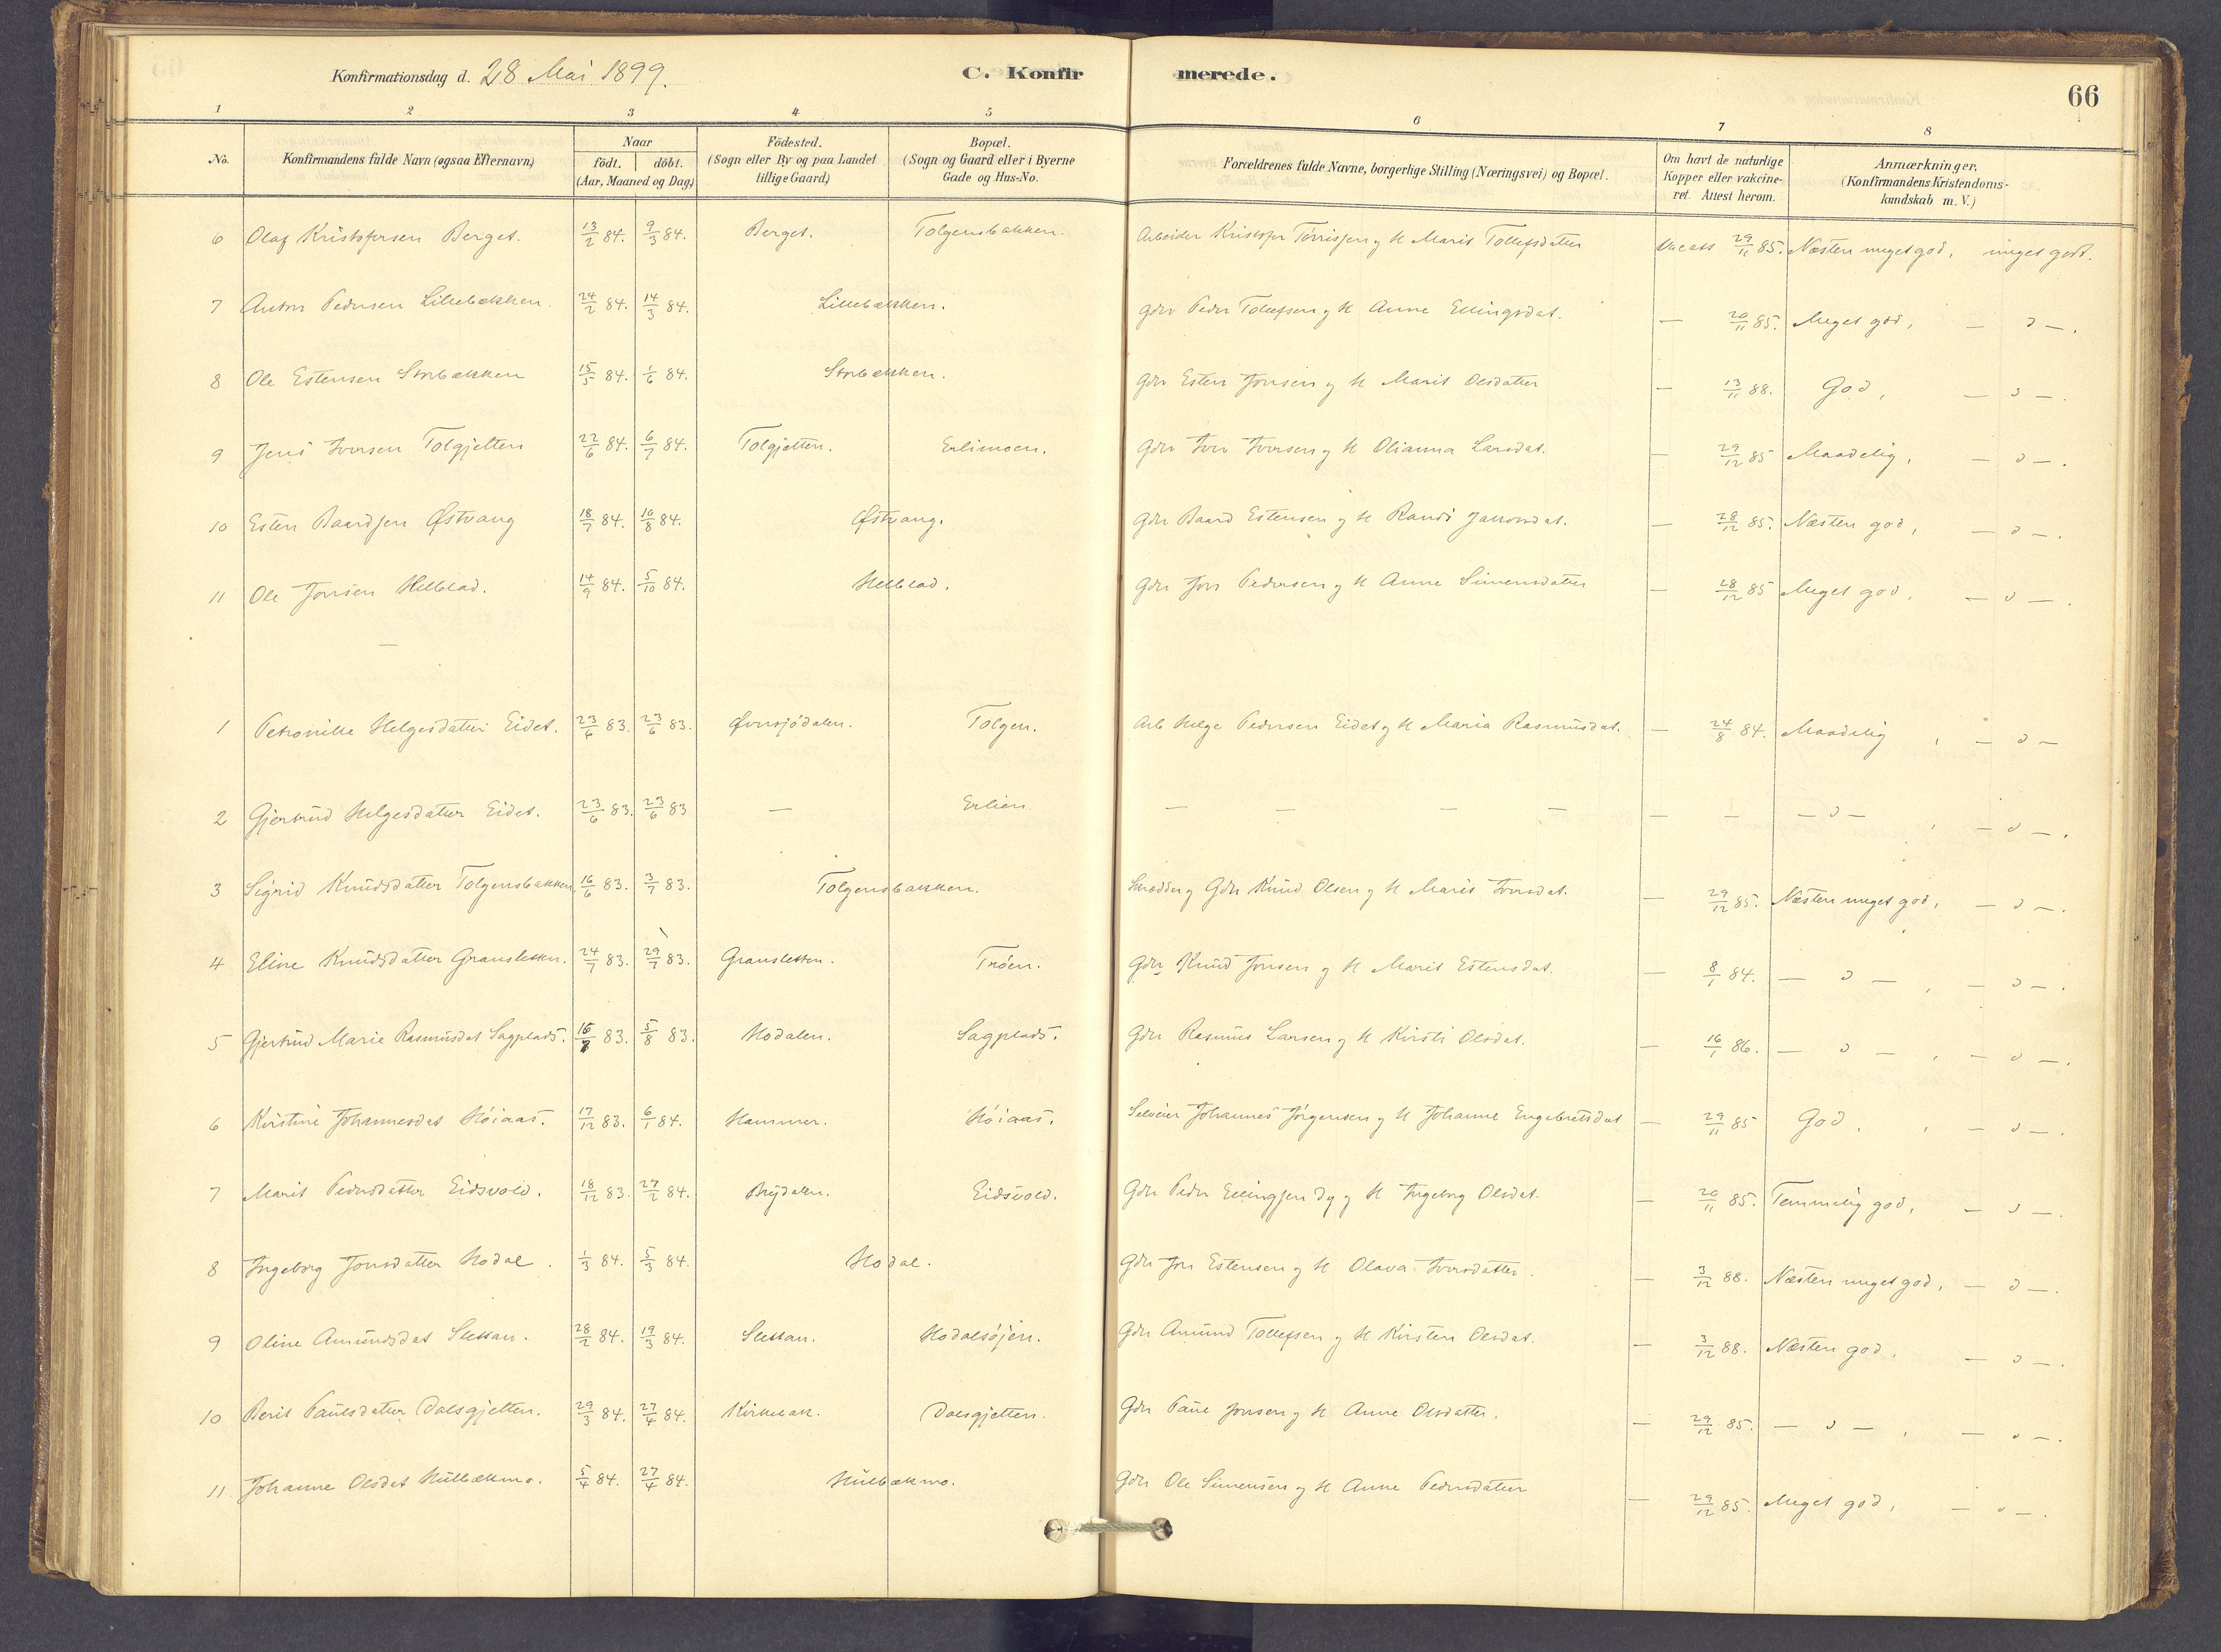 Konfirmationsdag d. 28 Mai 1899. C. Konfirmerede. 66
1 2 3 4 5 6 7 8
No. Konfirmandens fulde Navn (ogsaa Efternavn) Naar födt. döbt. (Aar, Maaned og Dag) Födested. (Sogn eller By og paa Landet tillige Gaard) Bopæl. (Sogn og Gaard eller i Byerne Gade og Hus-No. Forældrenes fulde Navne, borgerlige Stilling (Næringsvei) og Bopæl. Om havt de naturlige Kopper eller vakcineret. Attest herom. Anmærkninger. (Konfirmandens Kristendomskundskab m. V.)
6 Olaf Kristofersen Berget. 13/2 84. 9/3 84. Berget. Tolgensbakken. Arbeider Kristofer Tørrisjen og H Marit Tollefsdatter Vacats 29/11 85. Næsten meget god, meget godt.
7 Anton Pedersen Lillebækken. 24/2 84. 14/3 84. Lillebækken. Gdbr Peder Tollefsen og H Anne Ellingsdat. — 20/11 85. Meget god, — " —.
8 Ole Estensen Storbækken 15/5 84. 1/6 84. Storbækken. Gdbr Esten Jonsen og H Marit Olsdatter — 13/11 88. God, — " —.
9 Jens Iversen Tolgjetten 22/6 84. 6/7 84. Tolgjetten. Erlimoen. Gdbr Iver Iversen og H Olianna Larsdat. — 29/12 85 Maadelig, — " —.
10 Esten Baardsen Østvang 18/7 84. 10/8 84. Østvang. Gdbr Baard Estensen og H Randi — 28/12 85. Næsten god, — " —.
11 Ole Jonsen Helblad. 14/9 84. 5/10 84. Helblad. Gdbr Jon Pedersen og H Anne Simensdatter — 28/12 85 Meget god, — " —.
—
1 Petronille Helgesdatter Eidet. 23/6 83. 23/6 83. Øversjødalen. Tolgen. Arb Helge Pedersen Eidet og H Maria Rasmusdat. — 24/8 84. Maadelig, — " —
2 Gjertrud Helgesdatter Eidet. 23/6 83. 23/6 83 — Erlien. — — — — — — — " —, — " —.
3 Sigrid Knudsdatter Tolgensbakken. 16/6 83. 3/7 83. Tolgensbakken. Skrædder og Gdbr Knud Olsen og H Marit Iversdat. — 29/12 85. Næsten meget god, — " —.
4 Eline Knudsdatter Gransletten. 24/7 83. 29/7 83. Gransletten. Trøen. Gdbr Knud Jonsen og H Marit Estensdat. — 8/1 84. — " —, — " —.
5 Gjertrud Marie Rasmusdat Sagplads. 16/7 83. 5/8 83. Hodalen. Sagplads. Gdbr Rasmus Larsen og H Kirsti Olsdat. — 16/1 86. — " —, — " —.
6 Kirstine Johannesdat Høiaas. 17/12 83. 6/1 84. Hammer. Høiaas. Selveier Johannes Jørgensen og H Johanne Engebretsdat — 29/11 85 God, — " —.
7 Marit Pedersdatter Eidsvold. 18/12 83. 27/2 84. Brydalen. Eidsvold. Gdbr Peder Ellingsen og H Ingeborg Olsdat. — 20/11 85. Temmelig god, — " —.
8 Ingeborg Jonsdatter Hodal. 1/3 84. 5/3 84. Hodal. Gdbr Jon Estensen og H Olava Iversdatter. — 3/12 88. Næsten meget god, — " —.
9 Oline Amundsdat Slettan. 28/2 84. 19/3 84. Slettan. Hodalsøjen. Gdbr Amund Tollefsen og H Kirsten Olsdat. — 3/12 88. Næsten god. — " —.
10 Berit Paulsdatter Dalsgjetten. 29/3 84. 27/4 84. Kirkebak. Dalsgjetten. Gdbr Paul Jonsen og H Anne Olsdatter. — 29/12 85. — " —, — " —.
11 Johanne Olsdat Hulbækmo. 5/4 84. 27/4 84. Hulbækmo. Gdbr Ole Simensen og H Anne Pedersdatter — 29/12 85. Meget god, — " —.